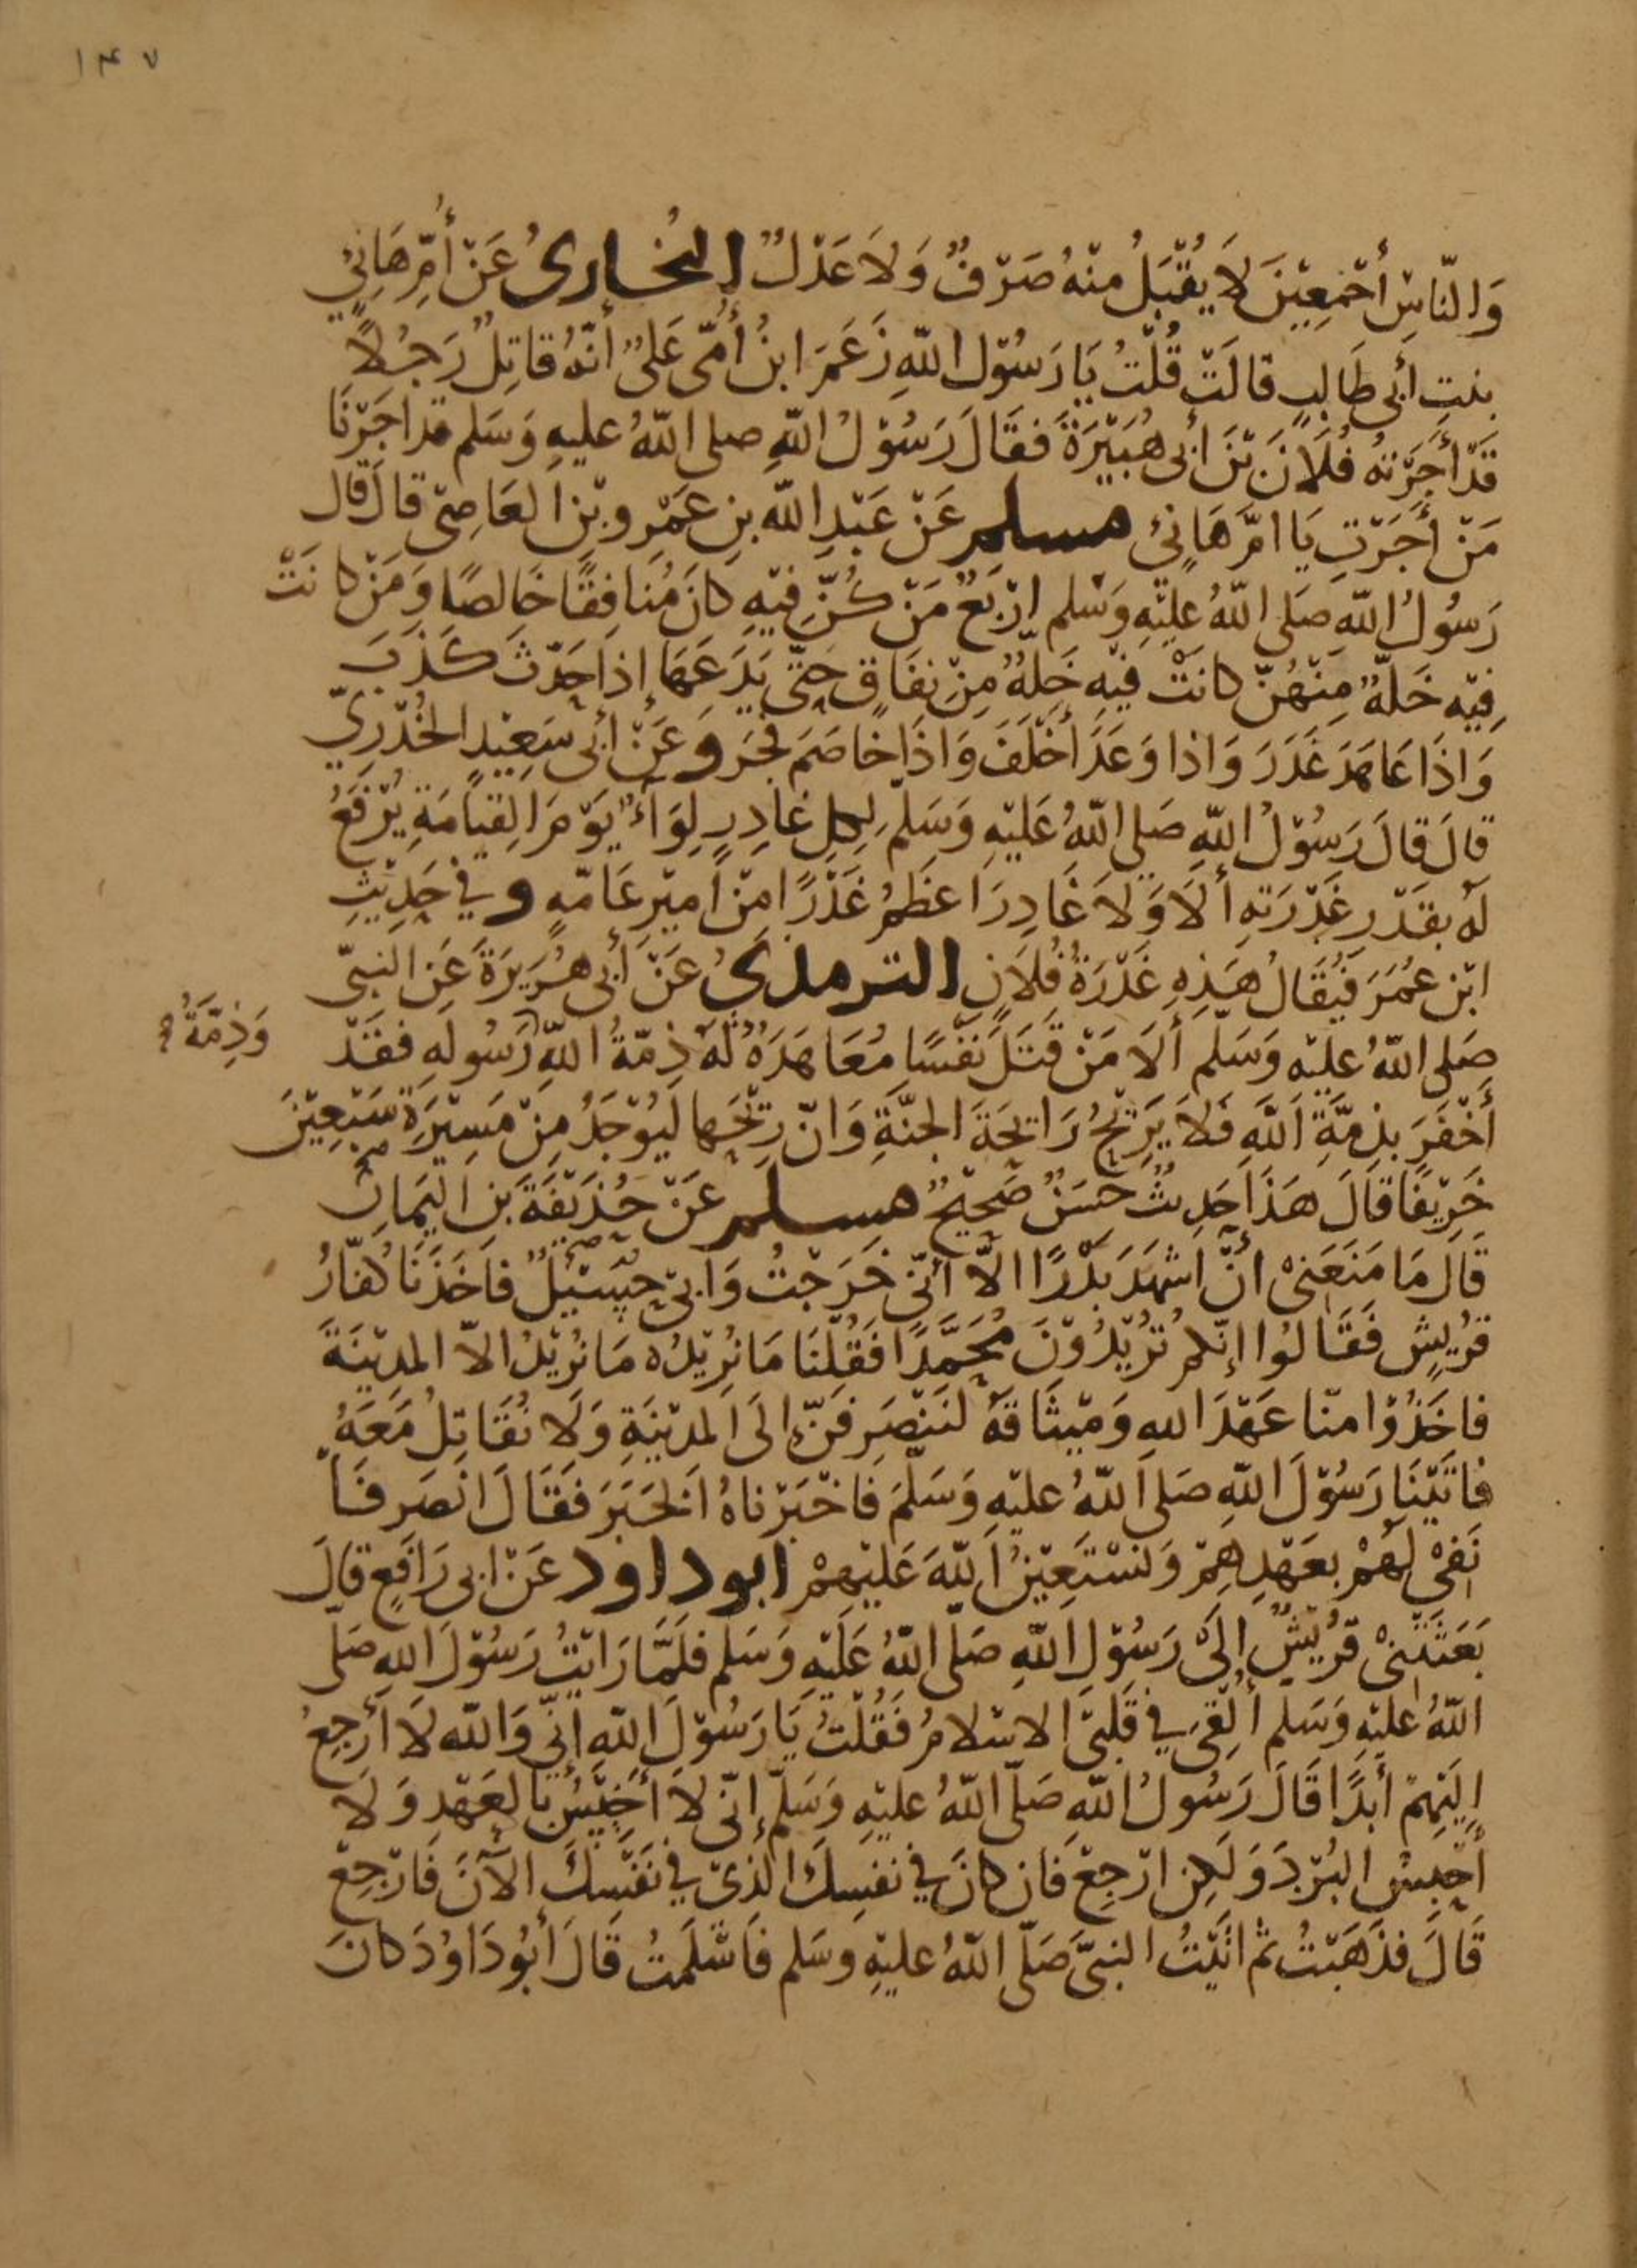 ١٤٧
وَالنَّاسِ أَجْمَعِيْنَ لَا يُقْبَلُ مِنْهُ صَرْفٌ وَلَا عَدْلٌ البُخَارِىُّ عَنْ أُمِّ هَانِئٍ
بنتِ أَبِى طَالِبٍ قَالَتْ قُلْتُ يَا رَسُوْل اللّٰهِ زَعَمَ ابنُ أُمِّى عَلِىٌّ أَنَّهُ قاتِلٌ رَجُلًا
قَدْ أَجَرْتهُ فُلَانَ بْنَ أبِى هُبَيْرَةَ فَقَالَ رَسُوْلُ اللّٰهِ صلى اللّٰهُ عليهِ وَسَلم قد اجَرْنَا
مَنْ أَجَرْتِ يَا امَّ هَانِئ مسلم عَنْ عَبْدِ اللّٰه بنِ عَمْرِو بْنِ العَاصِىْ قالَ قَالَ
رَسُولُ اللّٰهِ صَلى اللّٰهُ علَيْهِ وَسَلم ارْبَعٌ مَنْ كُنَّ فِيْهِ كانَ مُنافِقًا خَالصًا وَمَنْ كانَتْ
فِيْهِ خَلّةٌ مِنْهُنَّ كانَتْ فِيْهِ خَلّةٌ مِنْ نِفَاقٍ حَتّى يَدَعَهَا إِذَا حَدّثَ كَذَبَ
وَاذَا عَاهَدَ غَدَرَ وَاذا وَعَدَ أَخْلَفَ وَاذَا خاصَمَ فَجَرَ وَعَنْ أبِى سَعِيْدٍ الخُدْرِيِّ
قالَ قَالَ رَسُوْلُ اللّٰهِ صَلى اللّٰهُ عَلَيْهِ وَسَلم لِكلِ غادِرٍ لِوَاءٌ يَوْمَ القِيَامَةِ يُرْفَعُ
لَهُ بقَدْرِ غَدْرَتِهِ أَلَا وَلَا غَادِرَ اعظَمُ غَدْرًا مِنْ أمِيْرِ عَامّهٍ وفِي حَدِيْثِ
ابْنِ عُمَرَ فَيُقَالُ هَذِهِ غَدْرَةُ فُلَانٍ الترمذىُّ عَنْ أَبِى هُرَيرَةَ عَنِ النبىّ
صَلى اللّٰهُ علَيْهِ وَسَلم أَلَا مَنْ قَتَلَ نَفْسًا مُعَاهَدَةً لَهُ ذِمّةُ اللّٰهِ رَسُولهِ فقَدْ
وَذِمَّةُ
أَخْفَرَ بذِمَّةِ اللّٰهِ فَلَا يَرَحْ رَائِحَةَ الجنَّةِ وَانّ رِيْحَها لَيُوْجَدُ مِنْ مَسِيْرَةِ سَبْعِيْنَ
خَرِيْفًا قَالَ هَذَا حَدِيثٌ حسَنٌ صَحِيْحٌ مسلم عَنْ حُذَيْفَةَ بنِ اليَمَانِ
قَالَ مَا مَنَعَنِىْ انْ اشْهَدَ بَدْرًا الّا أنّى خَرَجْتُ وَابِى حِسَيْلٌ فاخَذَنَا كُفّارُ
قُرَيشٍ فَقَالُوا إِنّكمْ تُرِيْدُوْنَ مُحَمَّدًا فَقُلْنَا مَا نُرِيْدُه مَا نُرِيْدُ الاّ المدِيْنَةَ
فاخَذُوْا مِنّا عَهْدَ اللهِ وَمِيثَاقَهُ لنَنْصَرِفَنّ إلَى المدِيْنَةِ وَلَا نُقَاتِلُ مَعَهُ
فَاتَيْنَا رَسُوْلَ اللّٰهِ صَلى اللّٰهُ عليْهِ وَسَلّمَ فَاخْبَرْناهُ الخَبَرَ فَقَالَ انْصَرِفَا
نَفِىْ لهُمْ بعَهْدِهِمْ وَنَسْتَعِيْنُ اللّٰهَ عَلَيْهِمْ ابو داود عَنْ ابى رَافِعٍ قالَ
بَعَثَتْنِىْ قُرَيْشٌ إِلَى رَسُوْلِ اللّٰهِ صَلّى اللّٰهُ عَلَيْهِ وَسَلم فلَمَّا رَايْتُ رَسُوْلَ اللهِ صَلّى
اللّٰهُ علَيْهِ وَسَلم أُلْقِىَ فِي قَلبِىْ الاسْلامُ فَقُلْتُ يَا رَسُوْلَ اللّٰهِ إنّي وَاللّٰه لَا أَرْجِعُ
إِلَيْهِمْ أَبَدًا قَالَ رَسُولُ اللّٰهِ صَلّى اللّٰهُ عليْهِ وَسَلّم إنّى لَا أَخِيْسُ بالعَهْدِ وَلَا
أَحْبِسُ البُرْدَ وَلَكِن ارْجِعْ فَان كانَ فِي نفسِكَ الّذىْ فِي نَفْسِكَ الآنَ فَارْجِعْ
قَالَ فذَهَبْتُ ثم اتَيْتُ النبىَّ صَلّى اللّٰهُ عليْهِ وسَلم فأسْلَمتُ قَالَ أَبُو دَاوُدَ كانَ